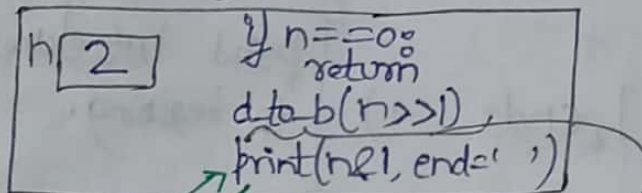 if n==0:
return
n 2
d_to_b(n>>1)
print(n&1, end=' ')